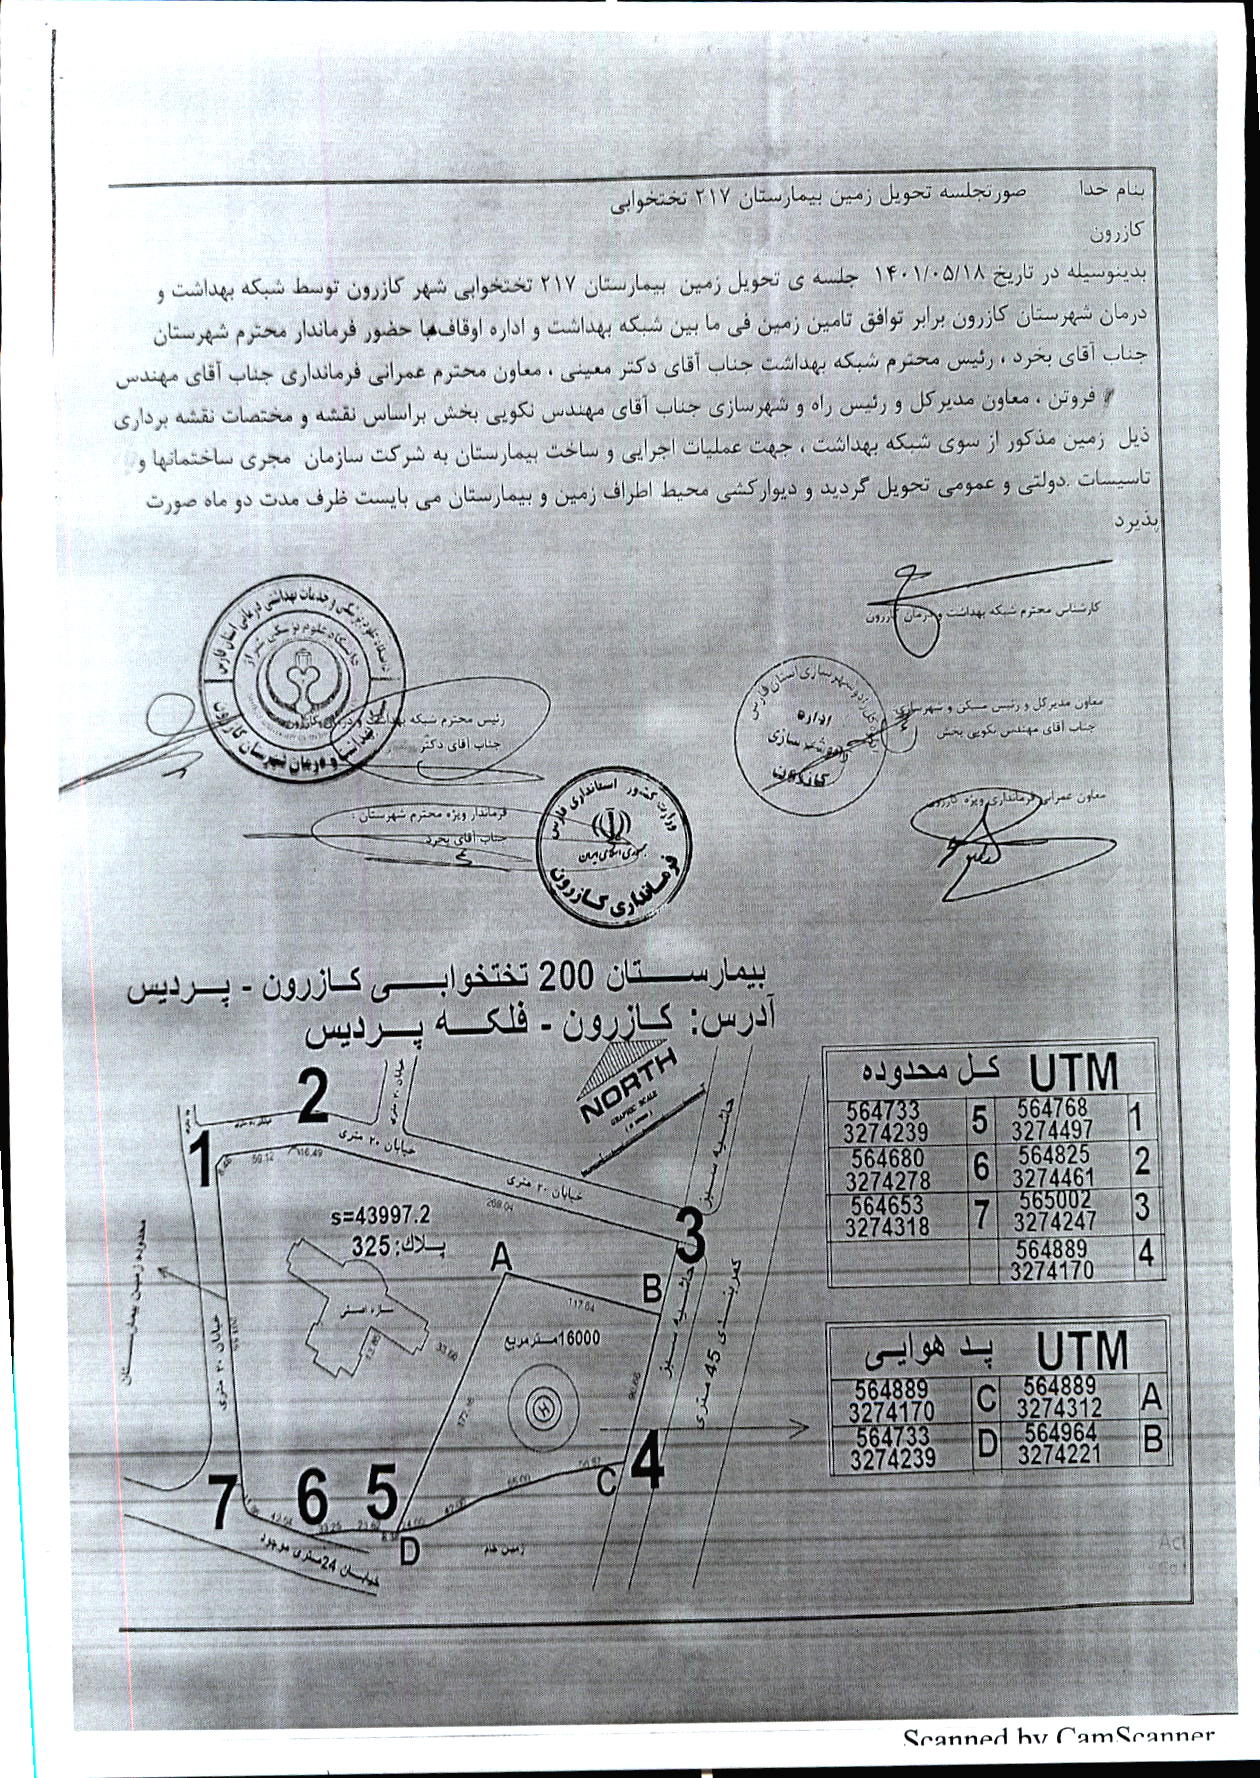 بنام خدا صورتجلسه تحویل زمین بیمارستان ۲۱۷ تختخوابی
کازرون
بدینوسیله در تاریخ ۱۴۰۱/۰۵/۱۸ جلسه ی تحویل زمین بیمارستان ۲۱۷ تختخوابی شهر کازرون توسط شبکه بهداشت و
درمان شهرستان کازرون برابر توافق تامین زمین فی ما بین شبکه بهداشت و اداره اوقاف با حضور فرماندار محترم شهرستان
جناب آقای بخرد ، رئیس محترم شبکه بهداشت جناب آقای دکتر معینی ، معاون محترم عمرانی فرمانداری جناب آقای مهندس
فروتن ، معاون مدیرکل و رئیس راه و شهرسازی جناب آقای مهندس نکویی بخش براساس نقشه و مختصات نقشه برداری
ذیل زمین مذکور از سوی شبکه بهداشت ، جهت عملیات اجرایی و ساخت بیمارستان به شرکت سازمان مجری ساختمانها و
تاسیسات .دولتی و عمومی تحویل گردید و دیوارکشی محیط اطراف زمین و بیمارستان می بایست ظرف مدت دو ماه صورت
پذیرد
کارشناس محترم شبکه بهداشت و درمان کازرون
معاون مدیرکل و رئیس مسکن و شهرسازی:
جناب آقای مهندس نکویی بخش
رئیس محترم شبکه بهداشت و درمان کازرون
جناب آقای دکتر
معاون عمرانی فرمانداری ویژه کازرون
فرماندار ویژه محترم شهرستان :
جناب آقای بخرد
دانشگاه علوم پزشکی و خدمات بهداشتی درمانی استان فارس
دانشگاه علوم پزشکی شیراز
شبکه بهداشت و درمان شهرستان کازرون
اداره کل راه و شهرسازی استان فارس
اداره
راه و شهرسازی
کازرون
وزارت کشور استانداری فارس
جمهوری اسلامی ایران
فرمانداری کازرون
بیمارستان 200 تختخوابی کازرون - پردیس
آدرس: کازرون - فلکه پردیس
NORTH
GRAPHIC SCALE
UTM کل محدوده
1 564768 3274497 5 564733 3274239
2 564825 3274461 6 564680 3274278
3 565002 3274247 7 564653 3274318
4 564889 3274170
UTM پد هوایی
A 564889 3274312 C 564889 3274170
B 564964 3274221 D 564733 3274239
1
2
3
4
5
6
7
A
B
C
D
s=43997.2
پلاک: 325
16000مترمربع
H
خیابان ۲۰ متری
خیابان ۲۰ متری
خیابان ۲۰ متری
خیابان ۲۰ متری
حاشیه سبز
حاشیه سبز
کمربندی 45 متری
محدوده زمین بیمارستان
خیابان 24متری موجود
زمین خام
117.64
Scanned by CamScanner